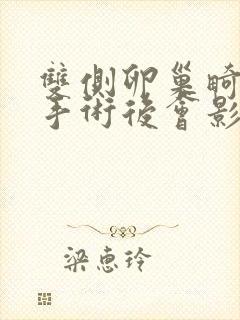 雙側卵巢畸
手術後會影
梁惠玲